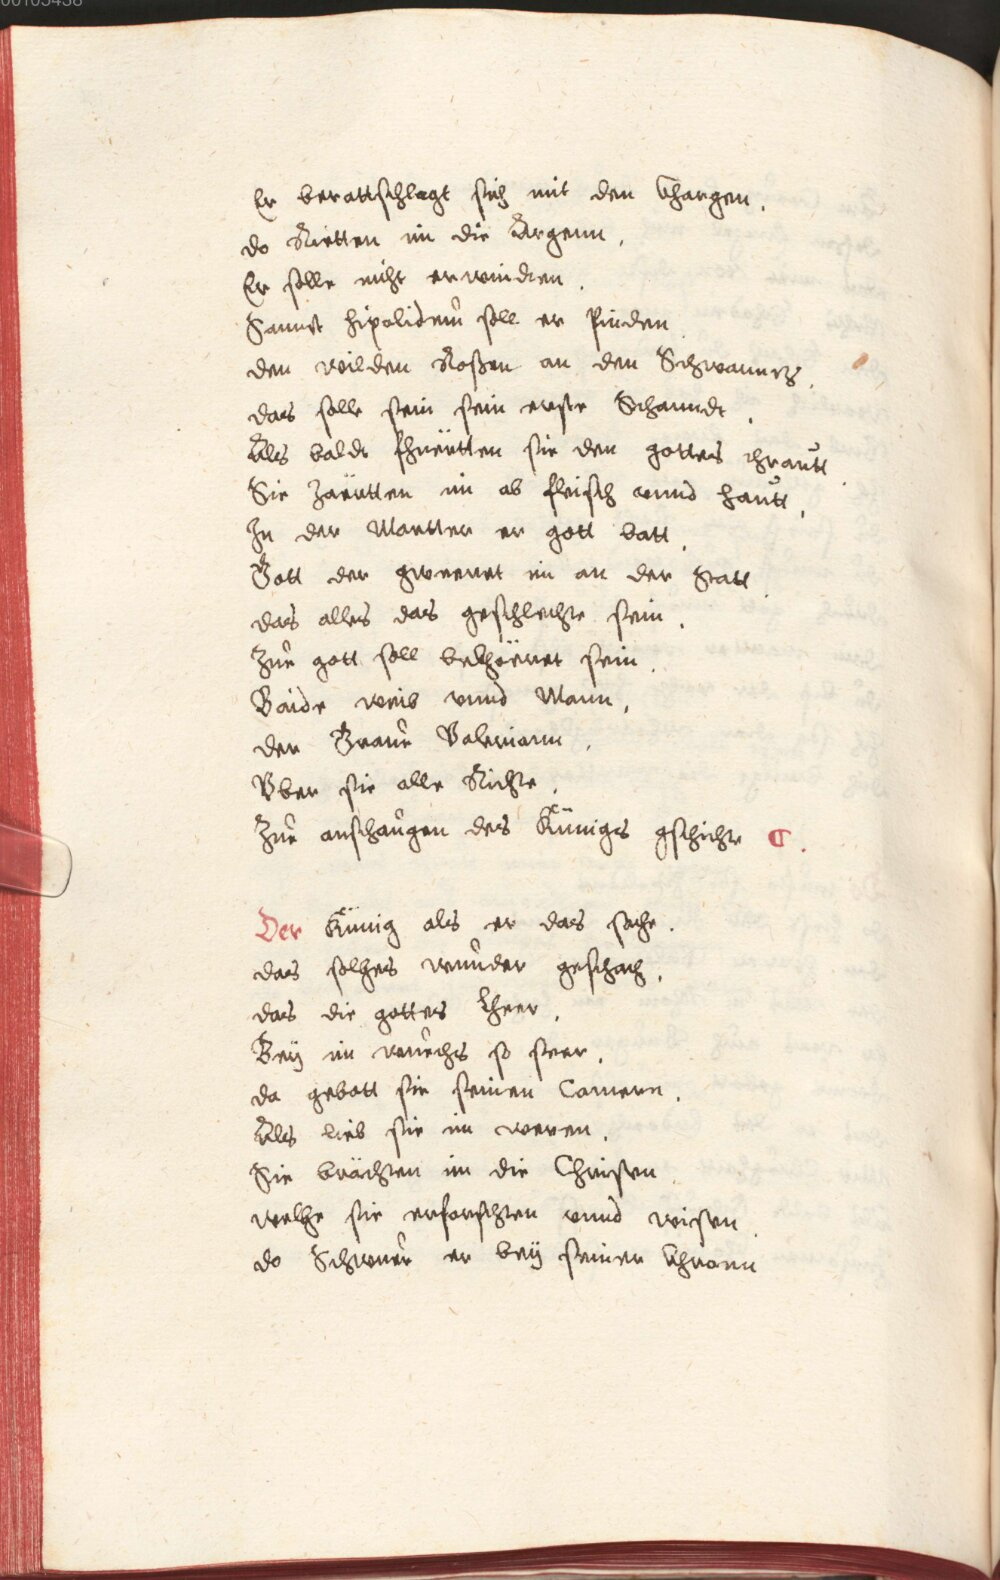 Er berattschlagt sich mit den Khargen.
do Rietten im die Argenn.
Er solle nicht erwindten.
Sannct Hipolidem soll er Pinden
den wilden Roßen an den Schwanntz.
das solle sein sein erste Schanndt.
Als baldt fhuertten sie den gottes thrautt.
Sie Zartten im ab fleisch vnnd hautt.
In der Martter er gott batt.
Gott der gwerret in an der Statt.
das alles das geschlechte sein.
Zue gott soll bekhöeret sein.
Baide weib vnnd Mann.
der Graue Valeriann.
Vber sie alle Richte.
Zue anschaugen des Künigs gschichte C.
Der Künig als er das sache.
das solhes wunder geschach.
das die gottes Lheer.
Bey im wuechs so seer.
da gebott sie seinen Camern.
Als lieb sie im weren.
Sie brächten im die Christen
welhe sie erforschten vnnd wisten.
do Schwuer er bey seiner Khronn